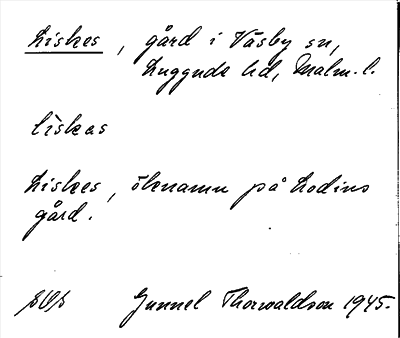 Liskes, gård i Väsby sn,
Luggude hd, Malm. l.
lìskas
Liskes, öknamn på Lodins
gård.
Gunnel Thorwaldson 1945.